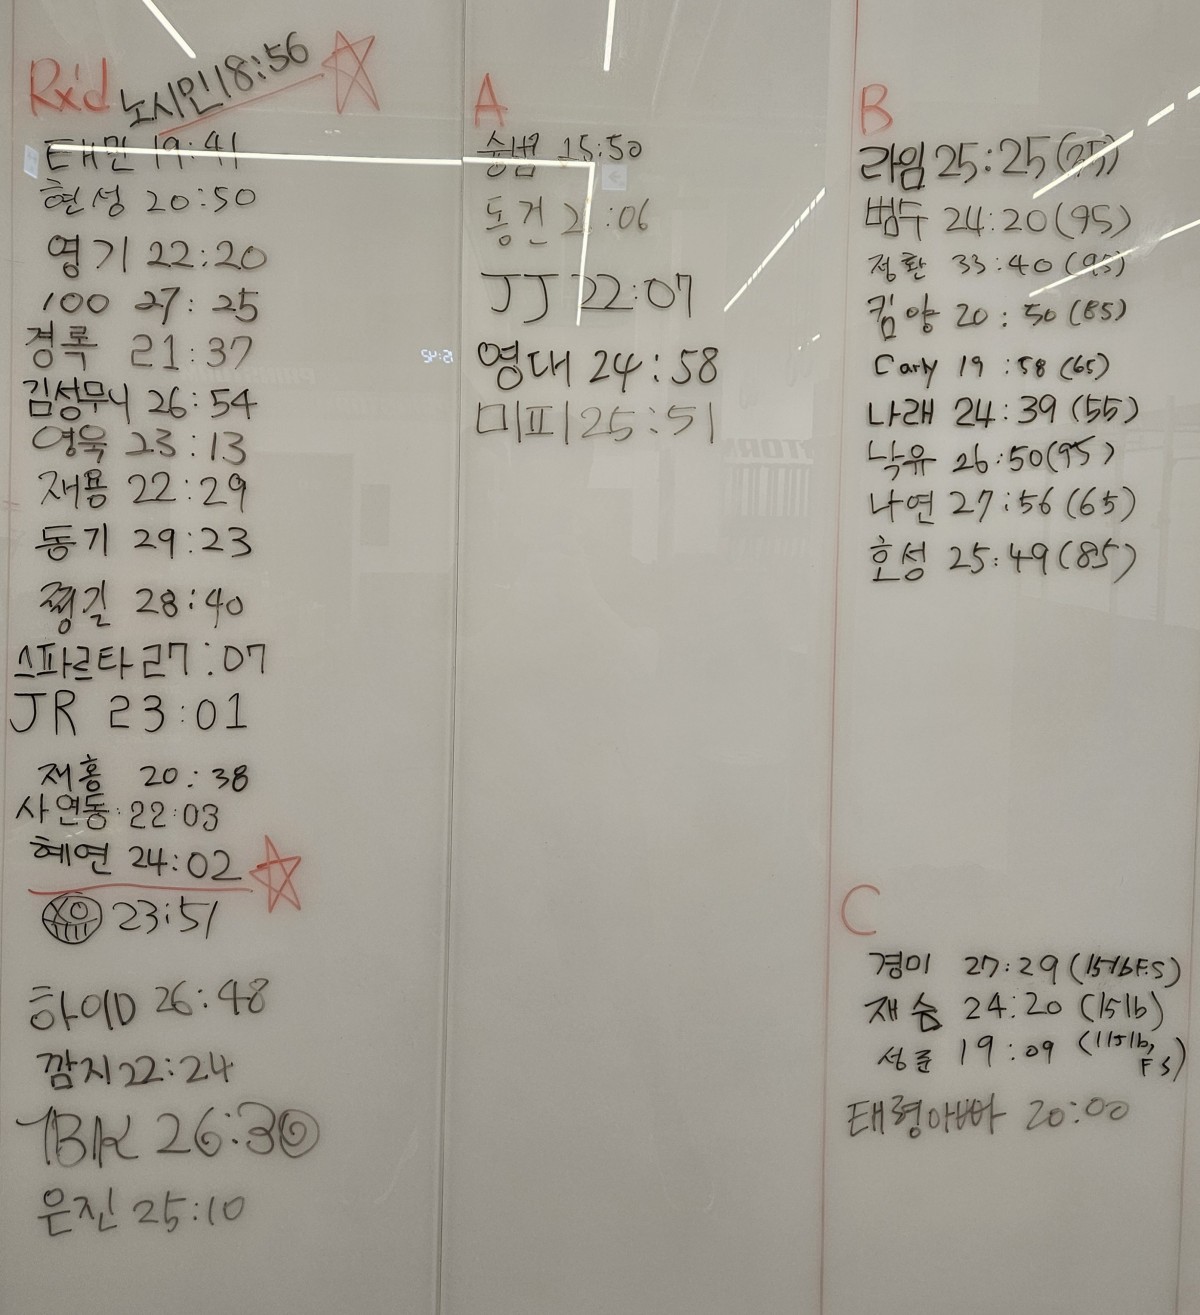 Rx'd 노시민 18:56
태민 19:41
현성 20:50
영기 22:20
100 27:25
경록 21:37
김성무니 26:54
영욱 23:13
재용 22:29
동기 29:23
쩡길 28:40
스파르타 27:07
JR 23:01
저홍 20:38
사연동 22:03
혜연 24:02
23:51
하이D 26:48
깜지 22:24
26:30
은진 25:10
A
승범 15:50
동건
JJ 22:07
영대 24:58
미피 25:51
B
라임 25:25
범두 24:20 (95)
정환 33:40 (95)
킴양 20:50 (85)
Carly 19:58 (65)
나래 24:39 (55)
낙유 26:50 (95)
나연 27:56 (65)
호성 25:49 (85)
C
경미 27:29 (15lb F.S)
재숨 24:20 (15lb)
성준 19:09 (115lb, FS)
태령아빠 20:00